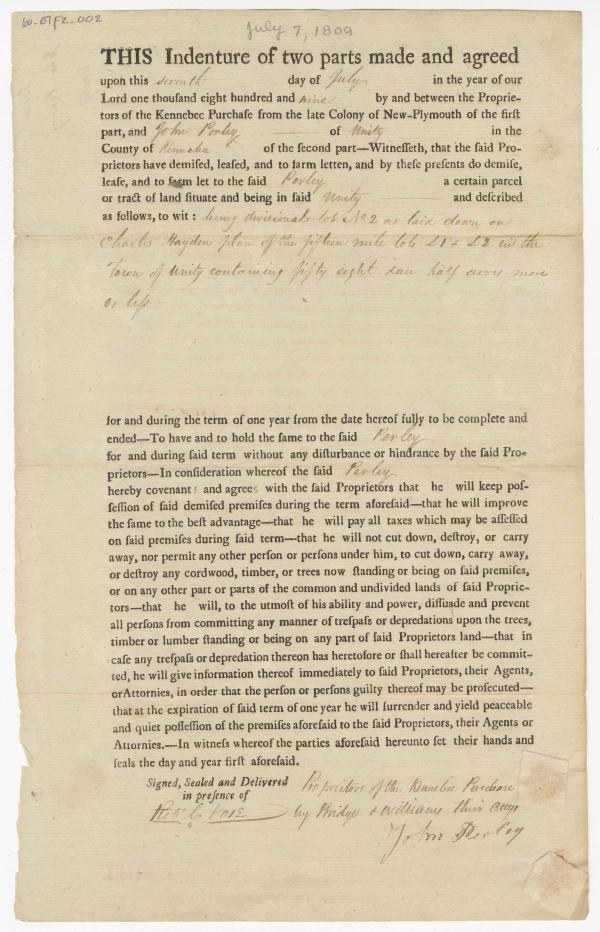 60-B7F2-002
July 7, 1809
THIS Indenture of two parts made and agreed
upon this seventh day of July in the year of our
Lord one thousand eight hundred and nine by and between the Proprie-
tors of the Kennebec Purchase from the late Colony of New-Plymouth of the first
part, and John Perley of Unity in the
County of Kennebec of the second part—Witnesseth, that the said Pro-
prietors have demised, leased, and to farm letten, and by these presents do demise,
lease, and to farm let to the said Perley a certain parcel
or tract of land situate and being in said Unity and described
as follows, to wit: being divisional lot No 2 as laid down on
Charles Hayden plan of the fifteen mile lots L1 & L2 in the
Town of Unity containing fifty eight half acres more
or less
for and during the term of one year from the date hereof fully to be complete and
ended—To have and to hold the same to the said Perley
for and during said term without any disturbance or hindrance by the said Pro-
prietors—In consideration whereof the said Perley
hereby covenants and agrees with the said Proprietors that he will keep pos-
session of said demised premises during the term aforesaid—that he will improve
the same to the best advantage—that he will pay all taxes which may be assessed
on said premises during said term—that he will not cut down, destroy, or carry
away, nor permit any other person or persons under him, to cut down, carry away,
or destroy any cordwood, timber, or trees now standing or being on said premises,
or on any other part or parts of the common and undivided lands of said Proprie-
tors—that he will, to the utmost of his ability and power, dissuade and prevent
all persons from committing any manner of trespass or depredations upon the trees,
timber or lumber standing or being on any part of said Proprietors land—that in
case any trespass or depredation thereon has heretofore or shall hereafter be commit-
ted, he will give information thereof immediately to said Proprietors, their Agents,
or Attornies, in order that the person or persons guilty thereof may be prosecuted—
that at the expiration of said term of one year he will surrender and yield peaceable
and quiet possession of the premises aforesaid to the said Proprietors, their Agents or
Attornies.—In witness whereof the parties aforesaid hereunto set their hands and
seals the day and year first aforesaid.
Signed, Sealed and Delivered
in presence of
Robt C Vose
Proprietors of the Kennebec Purchase
by Bridge & Williams their Attys
John Perley